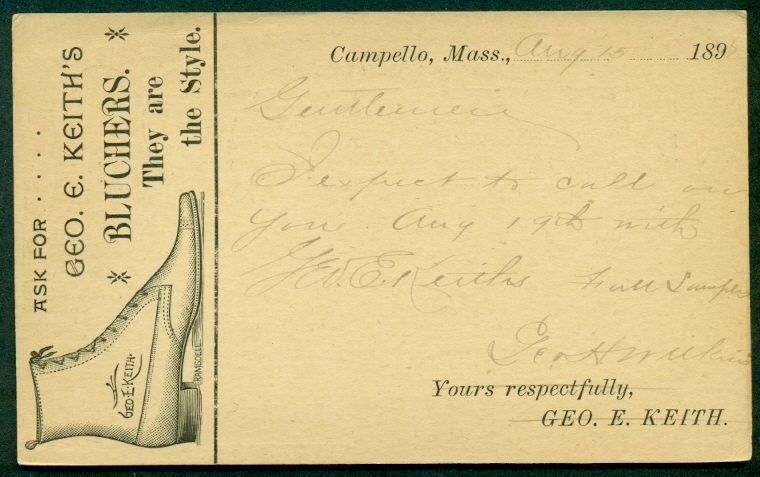 ASK FOR . . . . .
GEO. E. KEITH'S
* BLUCHERS. *
They are
the Style.
GEO. E. KEITH.
RAMSDELL
Campello, Mass., Aug 15 189
Gentlemen
I expect to call on
you Aug 19th with
Geo. E. Keiths Fall Samples
Geo H Wilkins
Yours respectfully,
GEO. E. KEITH.